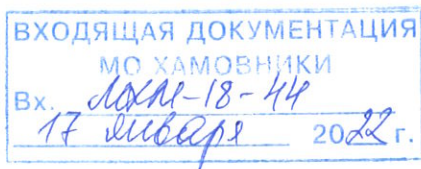 ВХОДЯЩАЯ ДОКУМЕНТАЦИЯ
МО ХАМОВНИКИ
Вх. МХМ-18-44
17 января 2022 г.